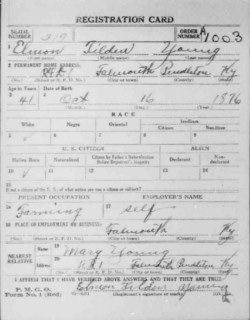 REGISTRATION CARD
SERIAL NUMBER 319 ORDER NUMBER A1003
1 Elmon Tilden Young
2 PERMANENT HOME ADDRESS:
R#1 Falmouth Pendleton Ky
Age in Years Date of Birth
41 Oct 16 1876
RACE
White Negro Oriental Indian
U. S. CITIZEN ALIEN
Native Born Naturalized Citizen by Father's Naturalization Before Registrant's Majority Declarant Non-declarant
If not a citizen of the U. S., of what nation are you a citizen or subject?
PRESENT OCCUPATION EMPLOYER'S NAME
Farming self
PLACE OF EMPLOYMENT OR BUSINESS:
Falmouth Ky
NEAREST RELATIVE
Name Mary Young
Address R#1 Falmouth Pendleton Ky
I AFFIRM THAT I HAVE VERIFIED ABOVE ANSWERS AND THAT THEY ARE TRUE
P. M. G. O.
Form No. 1 (Red) Elmon Tilden Young